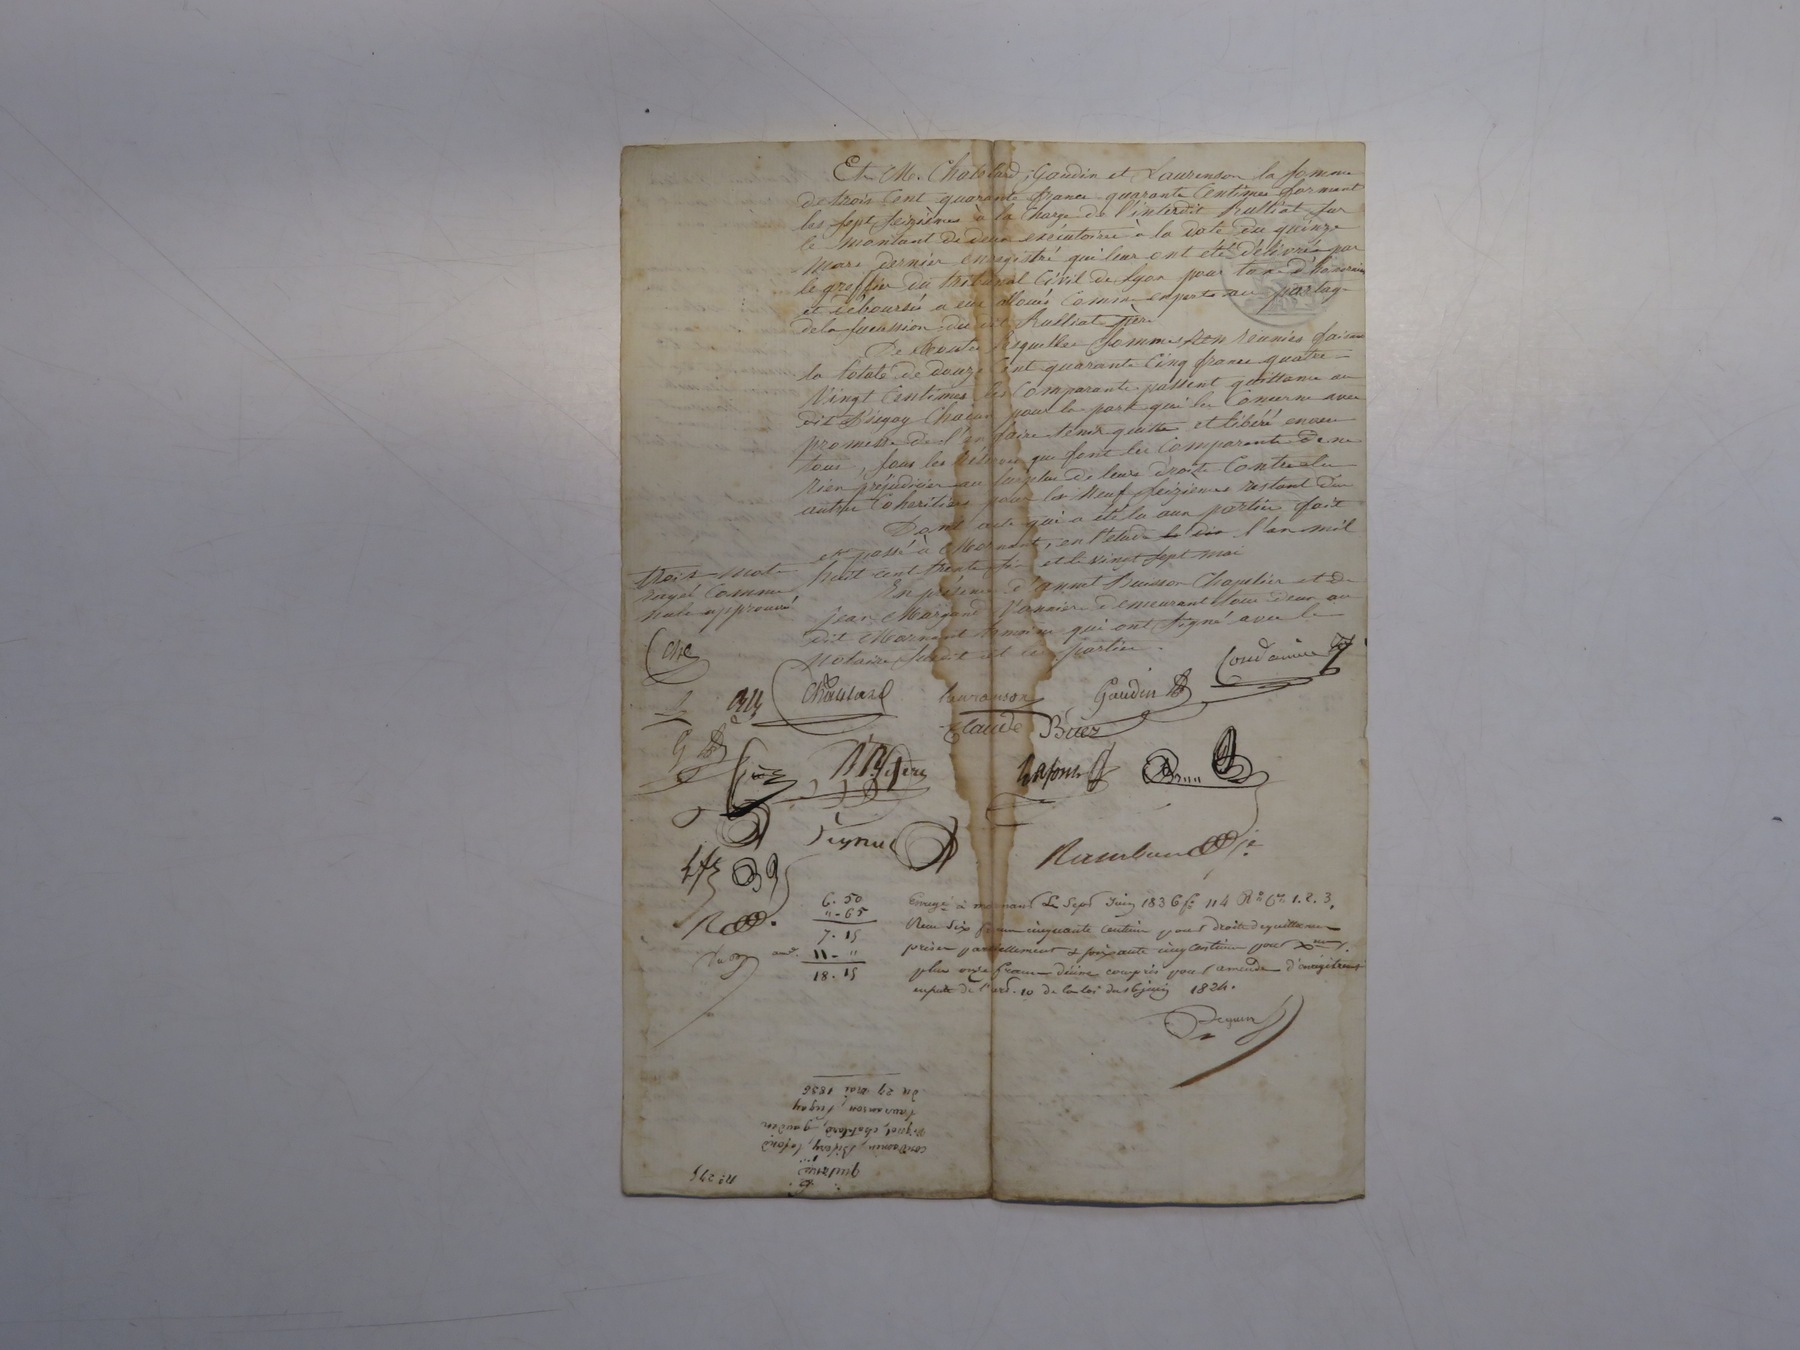 Et M. Chatelard, Gaudin et Laurenson la somme
de trois cent quarante francs quarante centimes formant
les sept seizièmes à la charge de l'interdit Rulliat sur
le montant de deux exécutoires à la date du quinze
mars dernier enregistré qui leur ont été délivrés par
le greffier du tribunal Civil de Lyon pour taxe d'honoraires
et déboursés a eux alloués comme experts au partage
de la succession du dit Rulliat père
De toutes lesquelles sommes réunies faisant
la totalité de douze cent quarante cinq francs quatre
vingt centimes les Comparants passent quittance au
dit chacun pour la part qui les concerne avec
promesse de l'en faire tenir quitte et libéré envers
tous, sous les réserves que font les Comparants de ne
rien préjudicier au surplus de leurs droits contre les
autres Cohéritiers pour les neuf seizièmes restant dus
Dont acte qui a été lu aux parties fait
et passé à Mornant, en l'étude l'an mil
huit cent trente six et le vingt sept mai
En présence d'annet Buisson Chapelier et de
Jean demeurant tous deux au
dit Mornant témoins qui ont signé avec le
Notaire susdit et les parties.
trois mots
rayés comme
nuls approuvé
Che
Condamin
Chatelard
laurenson
Gaudin
Claude
Lafont
6. 50
"-65
7. 15
amde. 11-"
18. 15
Enregé à mornant Le sept Juin 1836 fo 114 Ro Ces 1. 2. 3.
Reçu six francs cinquante centimes pour droits de quittances
prises partiellement & soixante cinq centimes pour Xme.
plus onze francs décime compris pour amende d'enregistrement
en de l'art. 10 de la loi du 16 juin 1824.
No. 275
quittance
condamin, lafond
chatelard, gaudin
Lauranson,
Du 27 mai 1836